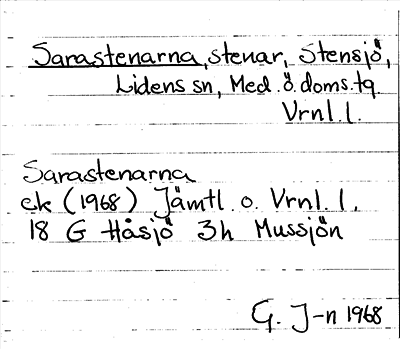 Sarastenarna, stenar, Stensjö,
Lidens sn, Med. ö. doms. tg.
Vrnl. l.
Sarastenarna
ek (1968) Jämtl. o. Vrnl. l.
18 G Håsjö 3h Mussjön
G. J-n 1968